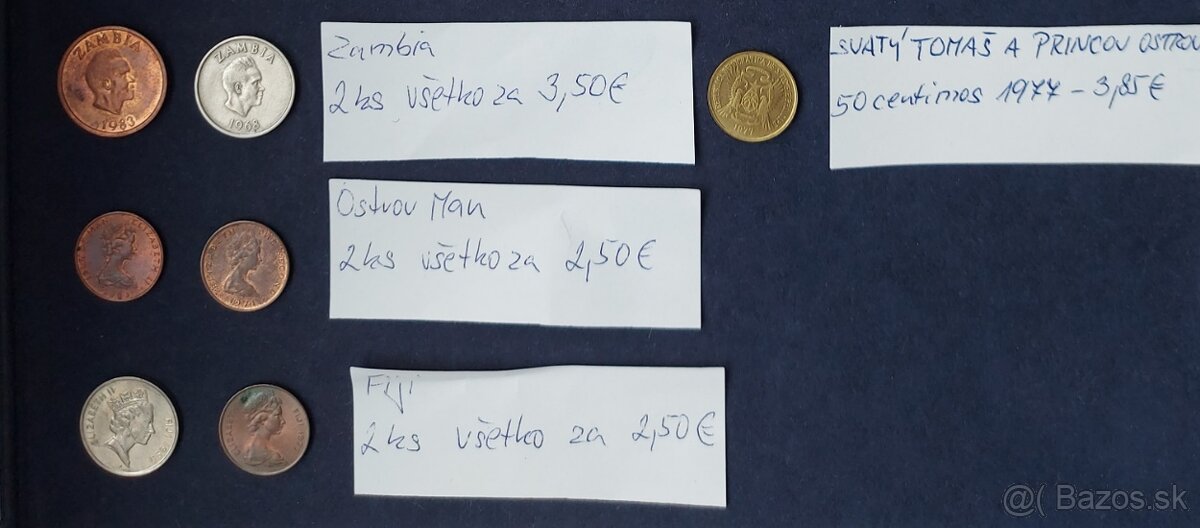 ZAMBIA
1983
ZAMBIA
1968
Zambia
2ks všetko za 3,50€
1977
SVATÝ TOMAŠ A PRINCOV OSTROV
50 centimos 1977 - 3,85€
Ostrov Man
2ks všetko za 2,50€
ELIZABETH II
Fiji
2ks všetko za 2,50€
@( Bazos.sk